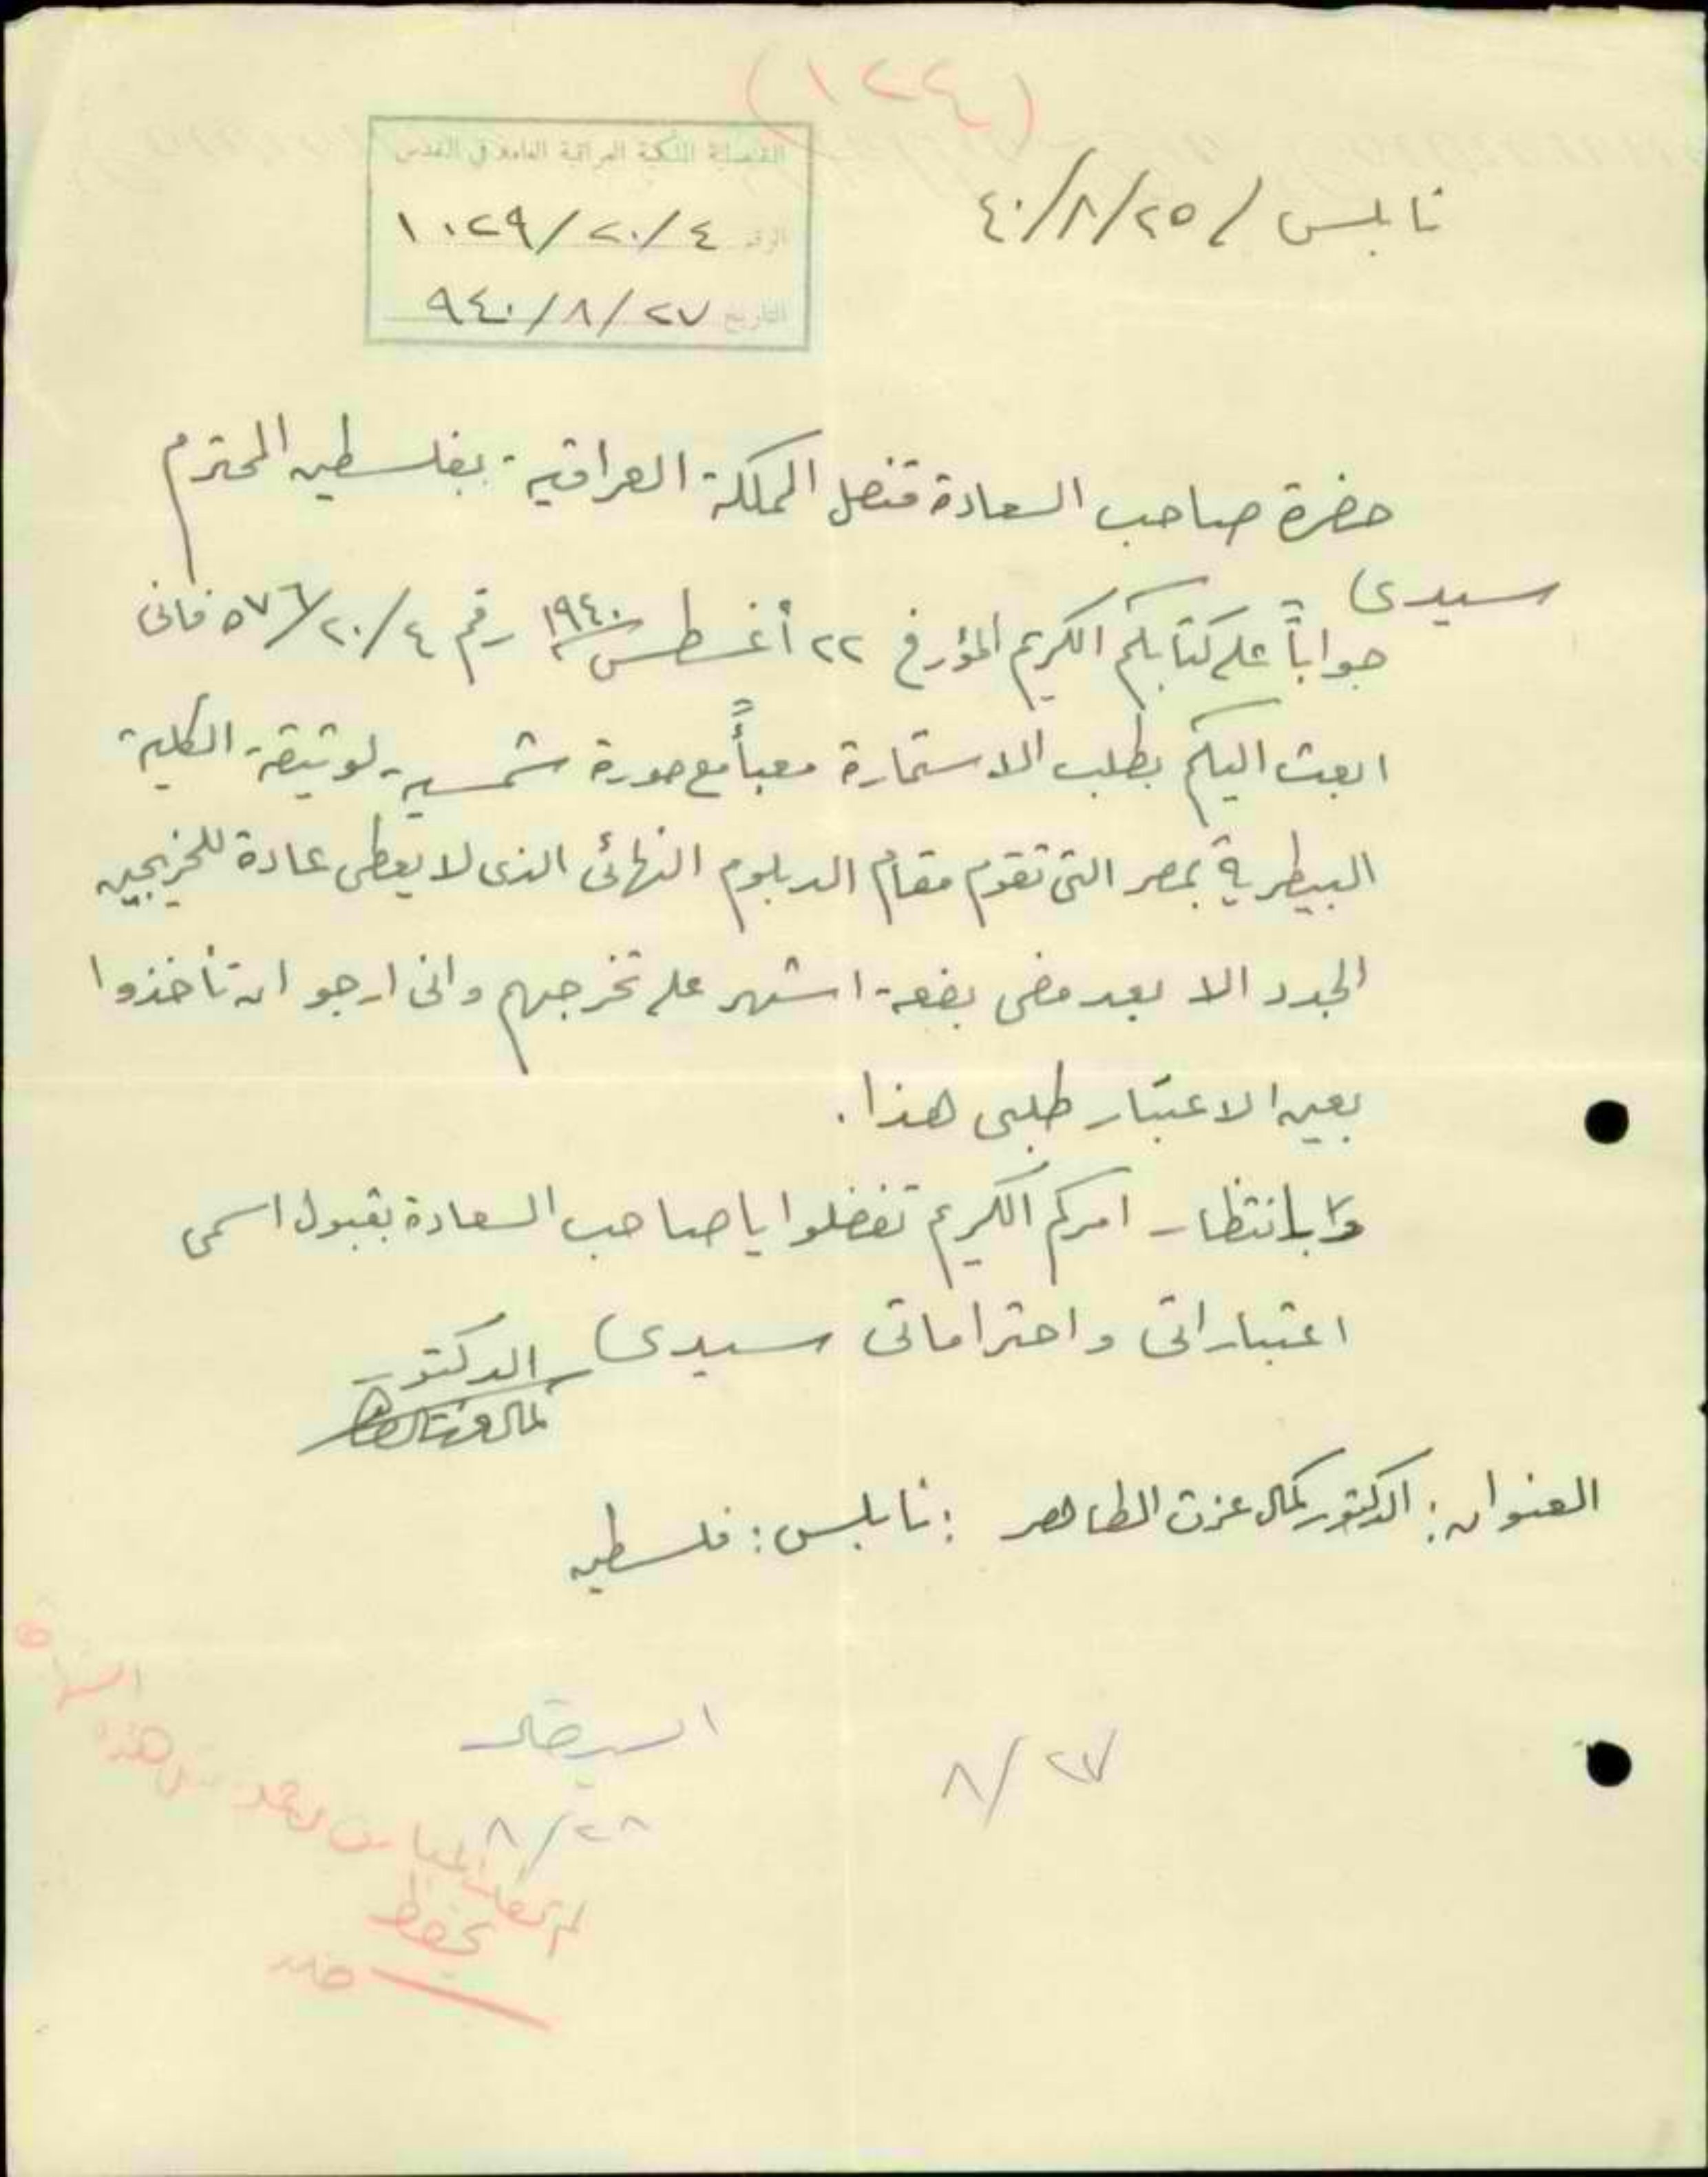 (١٢٤)
القنصلية الملكية العراقية العامة في القدس
الرقم ٤/٢٠/١٠٢٩
التاريخ ٢٧/٨/٩٤٠
نابلس / ٢٥/٨/٤٠
حضرة صاحب السعادة قنصل المملكة العراقية بفلسطين المحترم
سيدى
جواباً على كتابكم الكريم المؤرخ ٢٢ أغسطس سنة ١٩٤٠ رقم ٤/٢٠/٥٧٦ فانى
ابعث اليكم بطلب الاستمارة معبأً مع صورة شمسية لوثيقة الكلية
البيطرية بمصر التى تقوم مقام الدبلوم النهائى الذى لا يعطى عادة للخريجين
الجدد الا بعد مضى بضعة اشهر على تخرجهم وانى ارجو ان تأخذوا
بعين الاعتبار طلبى هذا.
وبانتظار امركم الكريم تفضلوا يا صاحب السعادة بقبول اسمى
اعتباراتى واحتراماتى سيدى
الدكتور
كمال عزت الطاهر
العنوان: الدكتور كمال عزت الطاهر : نابلس : فلسطين
٢٧/٨
٢٨/٨
هذه
يحفظ